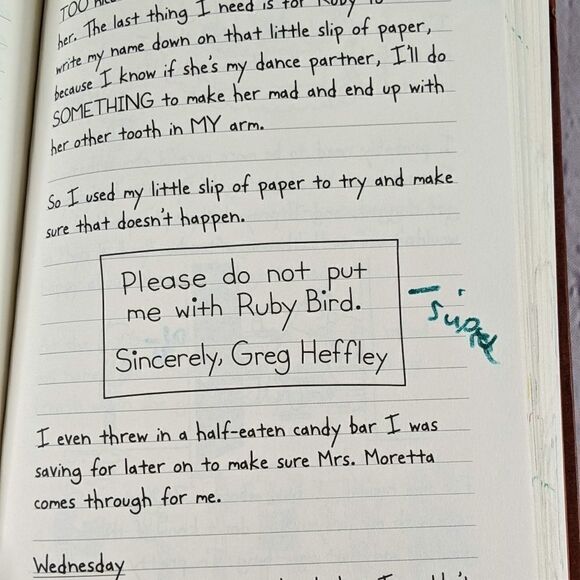 TOO
her. The last thing I need is for Ruby to
write my name down on that little slip of paper,
because I know if she's my dance partner, I'll do
SOMETHING to make her mad and end up with
her other tooth in MY arm.
So I used my little slip of paper to try and make
sure that doesn't happen.
Please do not put
me with Ruby Bird.
Sincerely, Greg Heffley
I even threw in a half-eaten candy bar I was
saving for later on to make sure Mrs. Moretta
comes through for me.
Wednesday